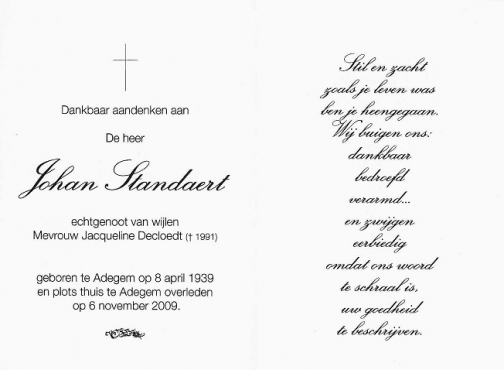 Dankbaar aandenken aan
De heer
Johan Standaert
echtgenoot van wijlen
Mevrouw Jacqueline Decloedt († 1991)
geboren te Adegem op 8 april 1939
en plots thuis te Adegem overleden
op 6 november 2009.
Stil en zacht
zoals je leven was
ben je heengegaan.
Wij buigen ons:
dankbaar
bedroefd
verarmd...
en zwijgen
eerbiedig
omdat ons woord
te schraal is,
uw goedheid
te beschrijven.